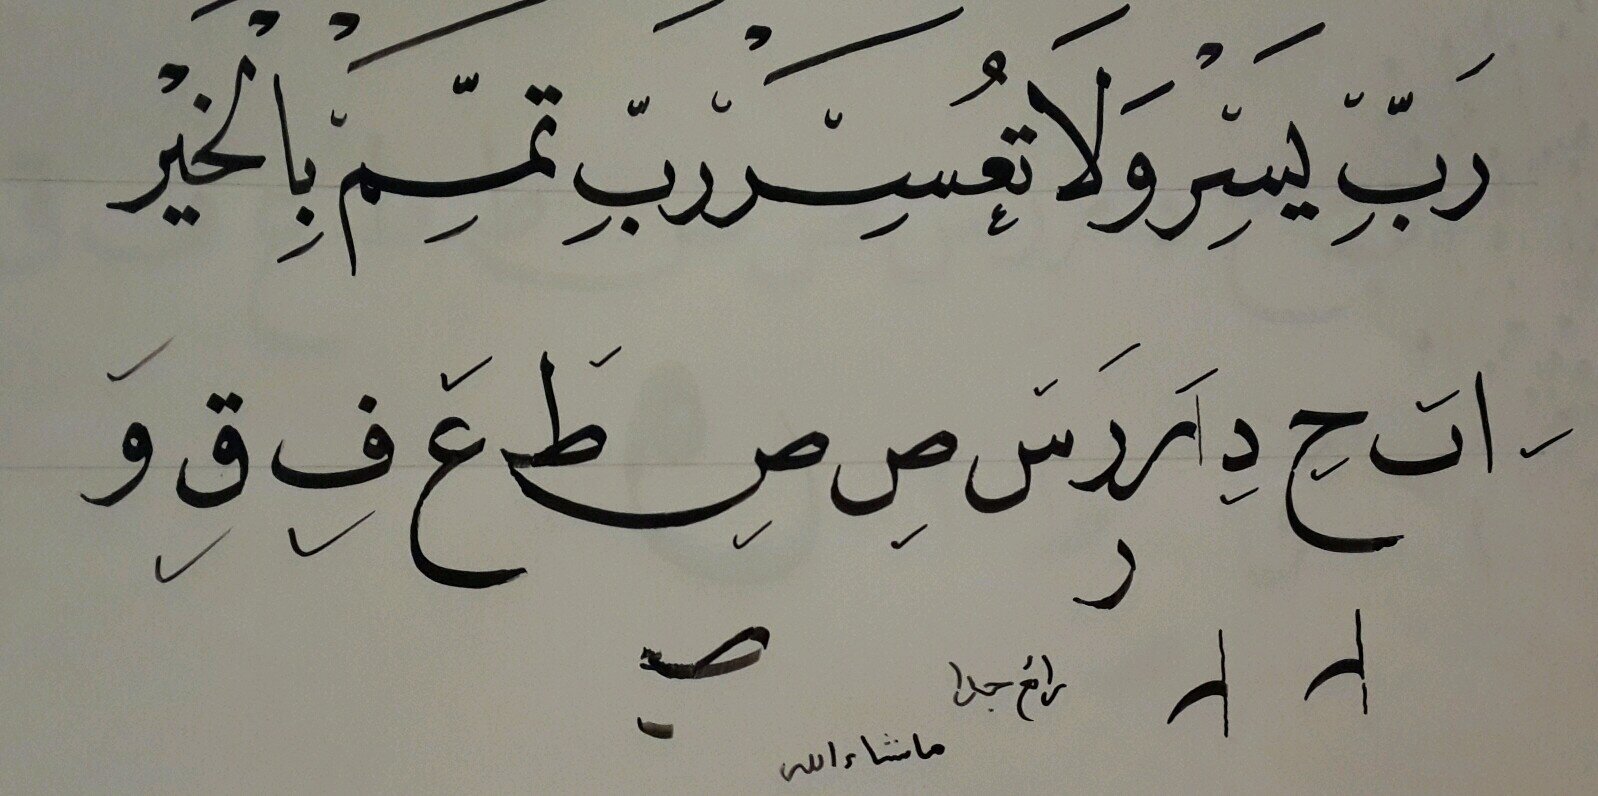 رَبِّ يَسِّرْ وَلَا تُعَسِّرْ رَبِّ تَمِّمْ بِالْخَيْرِ
ا تَ حِ دِ ا ر رَ سَ صِ صِ طَ عَ فِ قِ وَ
ر
ص
رائع جدا
ماشاء الله